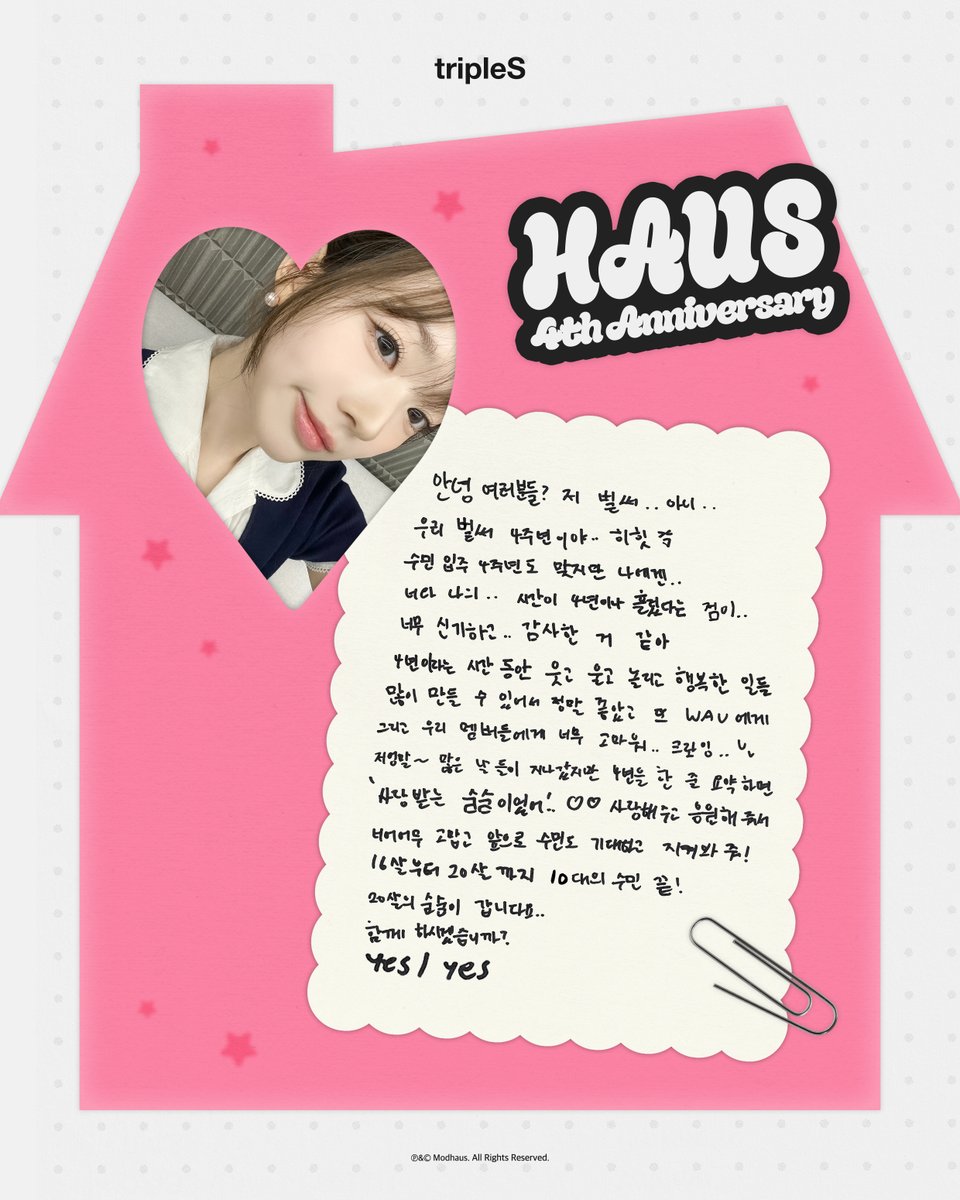 tripleS
HAUS
4th Anniversary
안녕 여러분들? 저 벌써.. 아니..
우리 벌써 4주년이야.. 히힛
수민 입주 4주년도 맞지만 나에겐..
너와 나의.. 시간이 4년이나 흘렀다는 점이..
너무 신기하고.. 감사한 거 같아
4년이라는 시간 동안 웃고 울고 놀리고 행복한 일들
많이 만들 수 있어서 정말 좋았고 또 WAV에게
그리고 우리 멤버들에게 너무 고마워.. 크라잉..
저엉말~ 많은 날들이 지나갔지만 4년을 한 줄 요약하면
사랑받는 숨숨이었어!.. ♡♡ 사랑해주고 응원해줘서
너어어무 고맙고 앞으로 수민도 기대하고 지켜봐 줘!
16살부터 20살까지 10대의 수민 끝!
20살의 숨숨이 갑니다요..
함께 하시겠습니까?
yes / yes
℗&© Modhaus. All Rights Reserved.